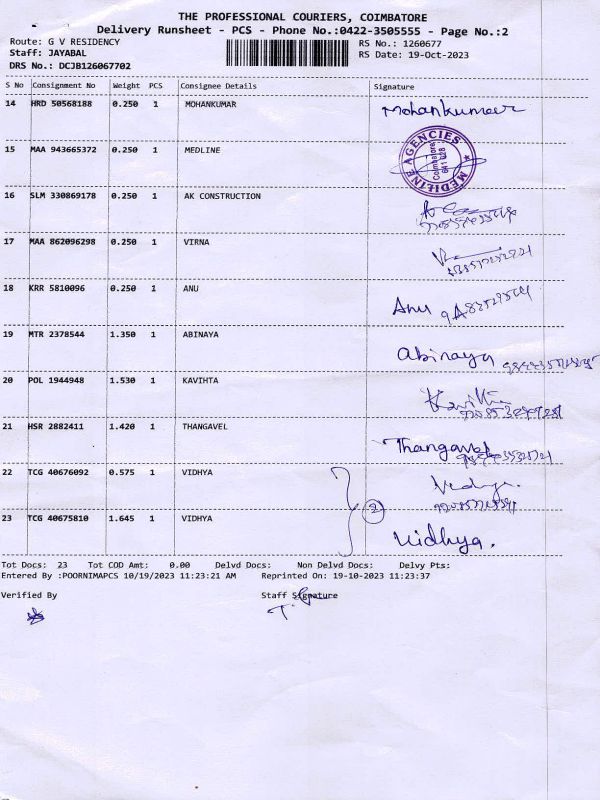 THE PROFESSIONAL COURIERS, COIMBATORE
Delivery Runsheet - PCS - Phone No.:0422-3505555 - Page No.:2
Route: G V RESIDENCY RS No.: 1260677
Staff: JAYABAL RS Date: 19-Oct-2023
DRS No.: DCJB126067702
S No Consignment No Weight PCS Consignee Details Signature
14 HRD 50568188 0.250 1 MOHANKUMAR Mohankumar
15 MAA 943665372 0.250 1 MEDLINE MEDILINE AGENCIES Coimbatore 641 028
16 SLM 330869178 0.250 1 AK CONSTRUCTION
17 MAA 862096298 0.250 1 VIRNA
18 KRR 5810096 0.250 1 ANU Anu
19 MTR 2378544 1.350 1 ABINAYA Abinaya
20 POL 1944948 1.530 1 KAVIHTA
21 HSR 2882411 1.420 1 THANGAVEL Thangavel
22 TCG 40676092 0.575 1 VIDHYA
2
23 TCG 40675810 1.645 1 VIDHYA Vidhya.
Tot Docs: 23 Tot COD Amt: 0.00 Delvd Docs: Non Delvd Docs: Delvy Pts:
Entered By :POORNIMAPCS 10/19/2023 11:23:21 AM Reprinted On: 19-10-2023 11:23:37
Verified By Staff Signature